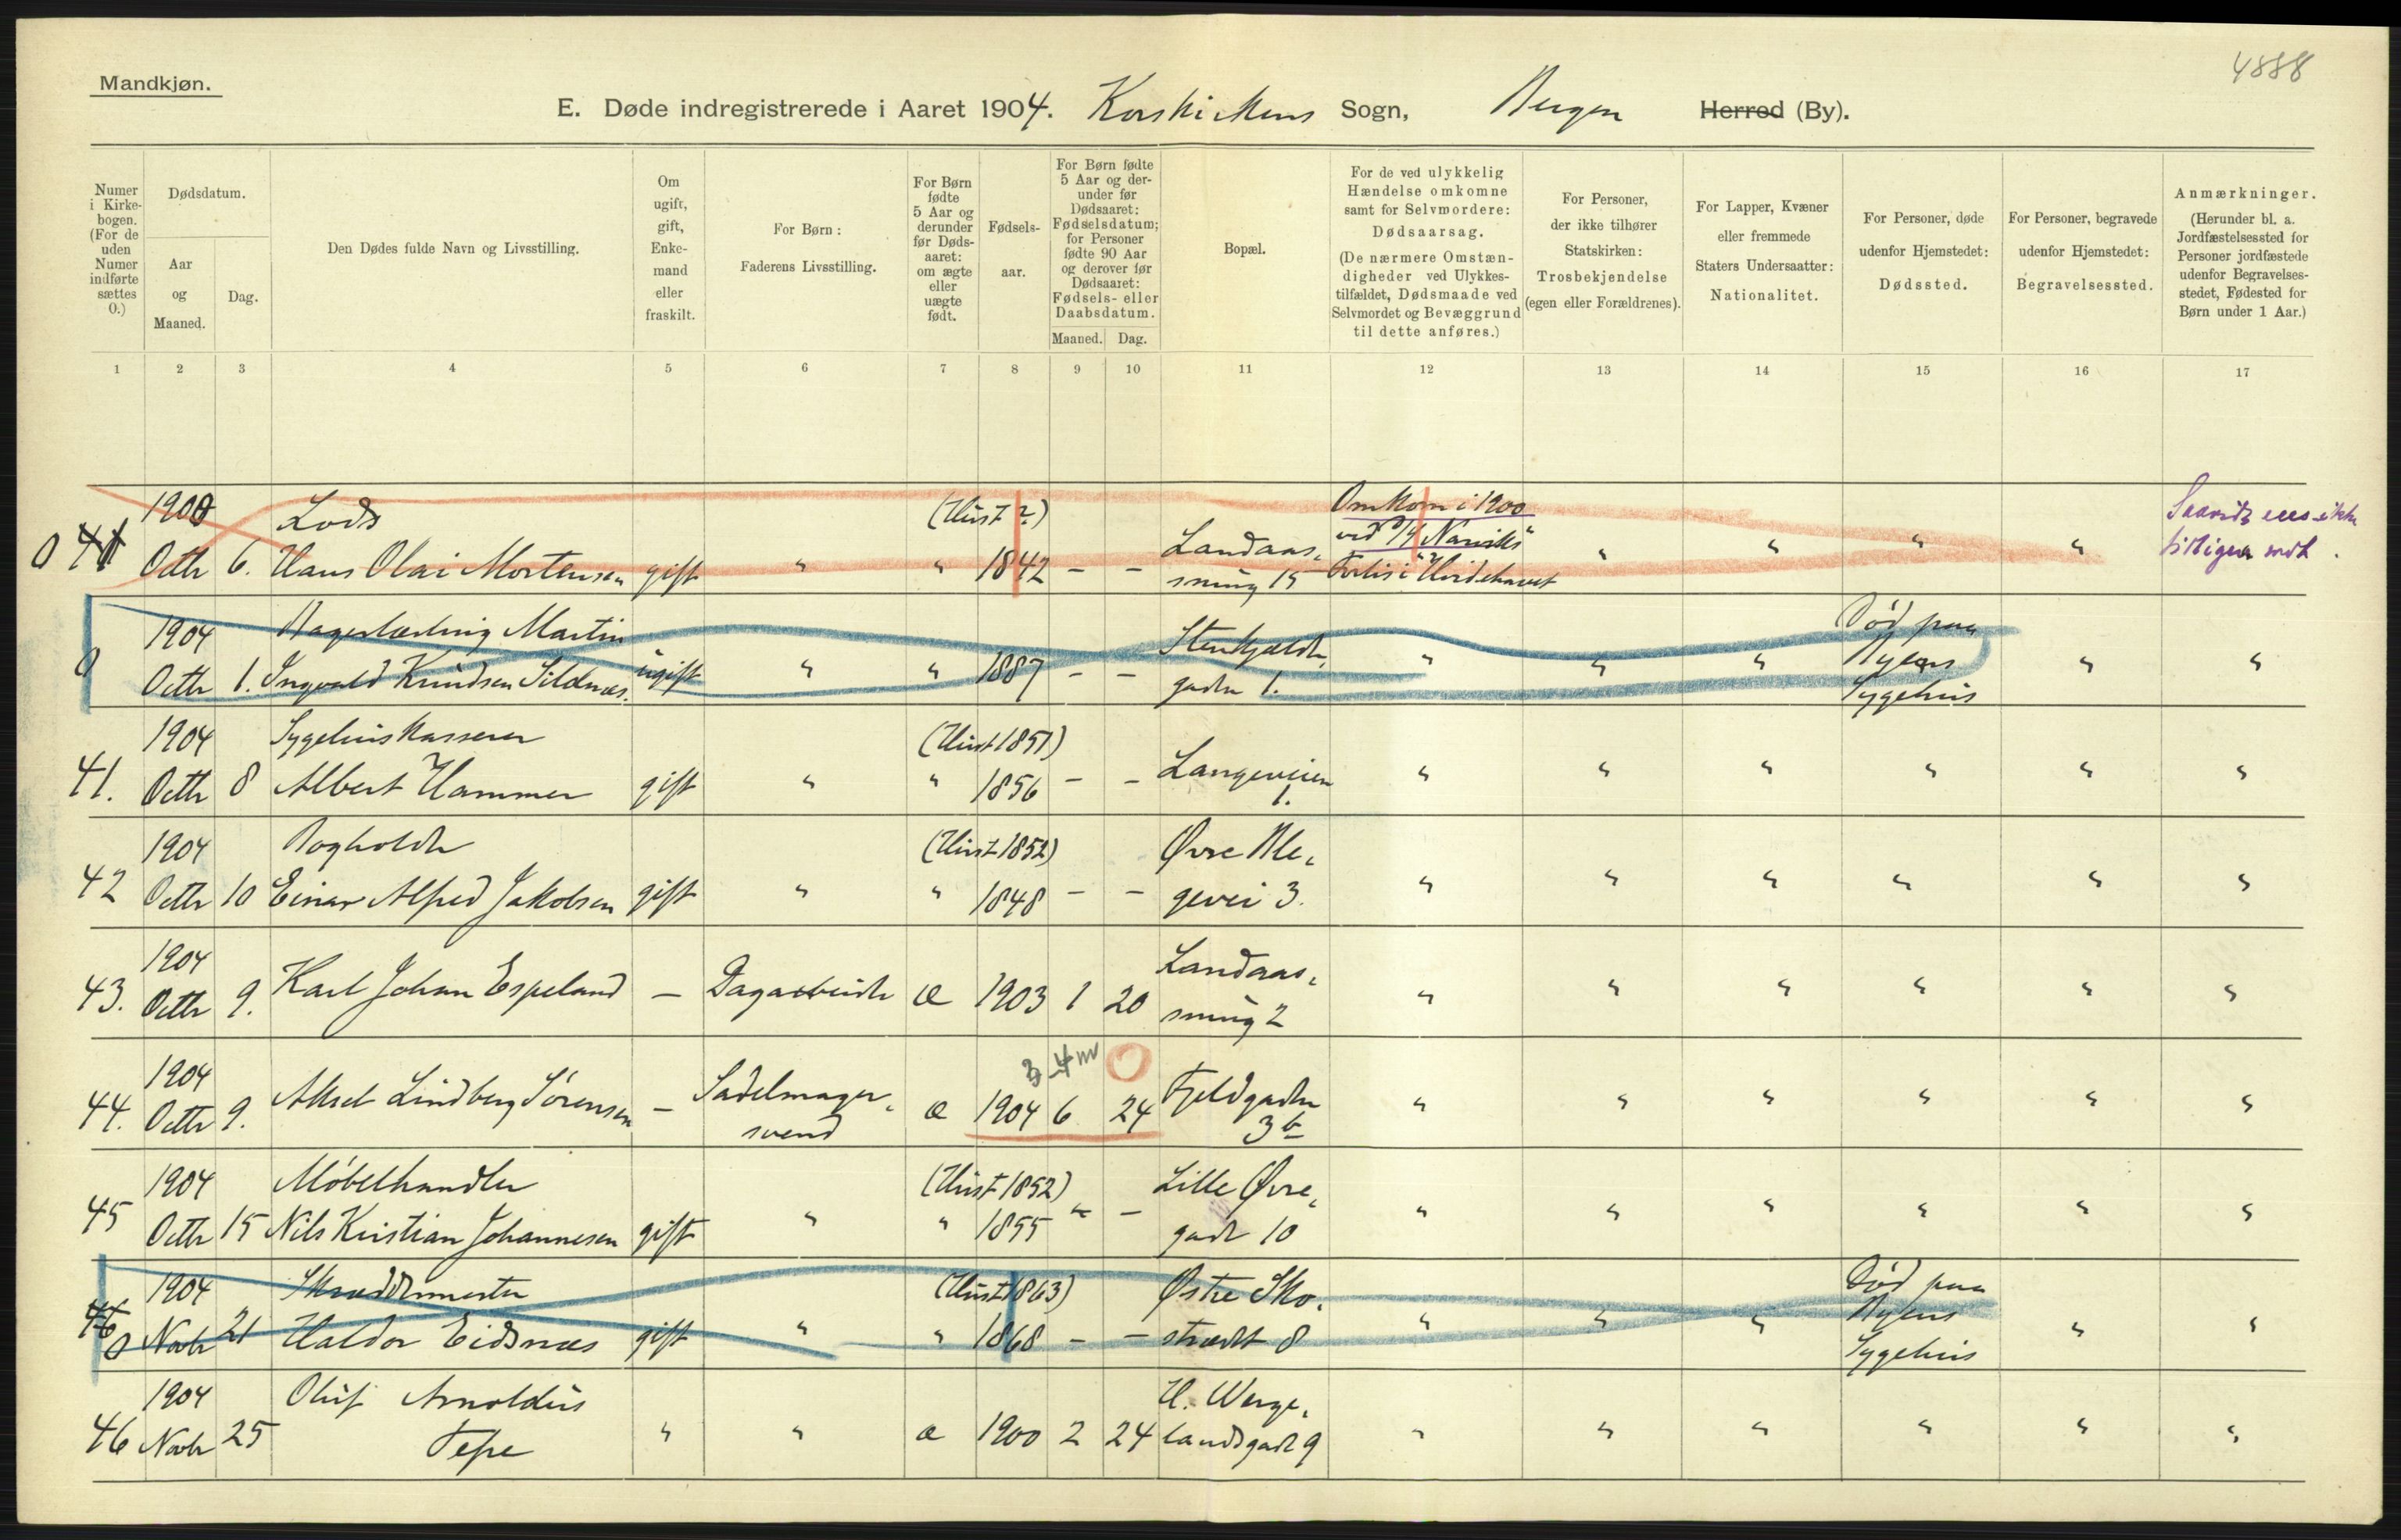 4888
Mandkjøn.
E. Døde indregistrerede i Aaret 1904. Korskirkens Sogn, Bergen Herred (By).
Numer i Kirke-bogen. (For de uden Numer indførte sættes 0.)
Dødsdatum.
Aar og Maaned.
Dag.
Den Dødes fulde Navn og Livsstilling.
Om ugift, gift, Enke-mand eller fraskilt.
For Børn: Faderens Livsstilling.
For Børn fødte 5 Aar og derunder før Døds-aaret: om ægte eller uægte født.
Fødsels-aar.
For Børn fødte 5 Aar og der-under før Dødsaaret: Fødselsdatum; for Personer fødte 90 Aar og derover før Dødsaaret: Fødsels- eller Daabsdatum.
Maaned. Dag.
Bopæl.
For de ved ulykkelig Hændelse omkomne samt for Selvmordere: Dødsaarsag. (De nærmere Omstæn-digheder ved Ulykkes-tilfældet, Dødsmaade ved Selvmordet og Bevæggrund til dette anføres.)
For Personer, der ikke tilhører Statskirken: Trosbekjendelse (egen eller Forældrenes).
For Lapper, Kvæner eller fremmede Staters Undersaatter: Nationalitet.
For Personer, døde udenfor Hjemstedet: Dødssted.
For Personer, begravede udenfor Hjemstedet: Begravelsessted.
Anmærkninger. (Herunder bl. a. Jordfæstelsessted for Personer jordfæstede udenfor Begravelses-stedet, Fødested for Børn under 1 Aar.)
1 2 3 4 5 6 7 8 9 10 11 12 13 14 15 16 17
1900 Lods (Hust ?) Omkom i 1900
0 41 Octbr 6. Hans Olai Mortensen gift " " 1842 - - Landaas- ved D/S "Narviks" " " " "
sving 15 Forlis i Hvidehavet
ikke
1904 Bagerlærling Martin Stenkjelder- Død paa
0 Octbr 1. Ingvald Knudsen Sildnæs. ugift " " 1887 - - gaden 1. " " " Nygens " "
Sygehus
1904 Sygehuskasserer (Hust 1851)
41. Octbr 8 Albert Hammer gift " " 1856 - - Langeveien 1. " " " " " "
1904 Bogholder (Hust 1852) Øvre Ble-
42 Octbr 10 Einar Alfred Jakobsen gift " " 1848 - - gevei 3. " " " " " "
1904 Landaas-
43. Octbr 9. Karl Johan Espeland - Dagarbeider æ 1903 1 20 sving 2 " " " " " "
3-4 m
1904 Sadelmager- Fjeldgaden
44. Octbr 9. Aksel Lindberg Sørensen - svend æ 1904 6 24 3 b " " " " " "
1904 Møbelhandler (Hust 1852) Lille Øvre-
45 Octbr 15 Nils Kristian Johannesen gift " " 1855 " - gade 10 " " " " " "
1904 Skræddermester (Hust 1863) Østre Sko- Død paa
46 0 Novbr 21 Haldor Eidsnæs gift " " 1868 - - strædet 8 " " " Nygens " "
Sygehus
1904 Oluf Arnoldus H. Werge-
46 Novbr 25 Tepe " " æ 1900 2 24 landsgade 9 " " " " " "